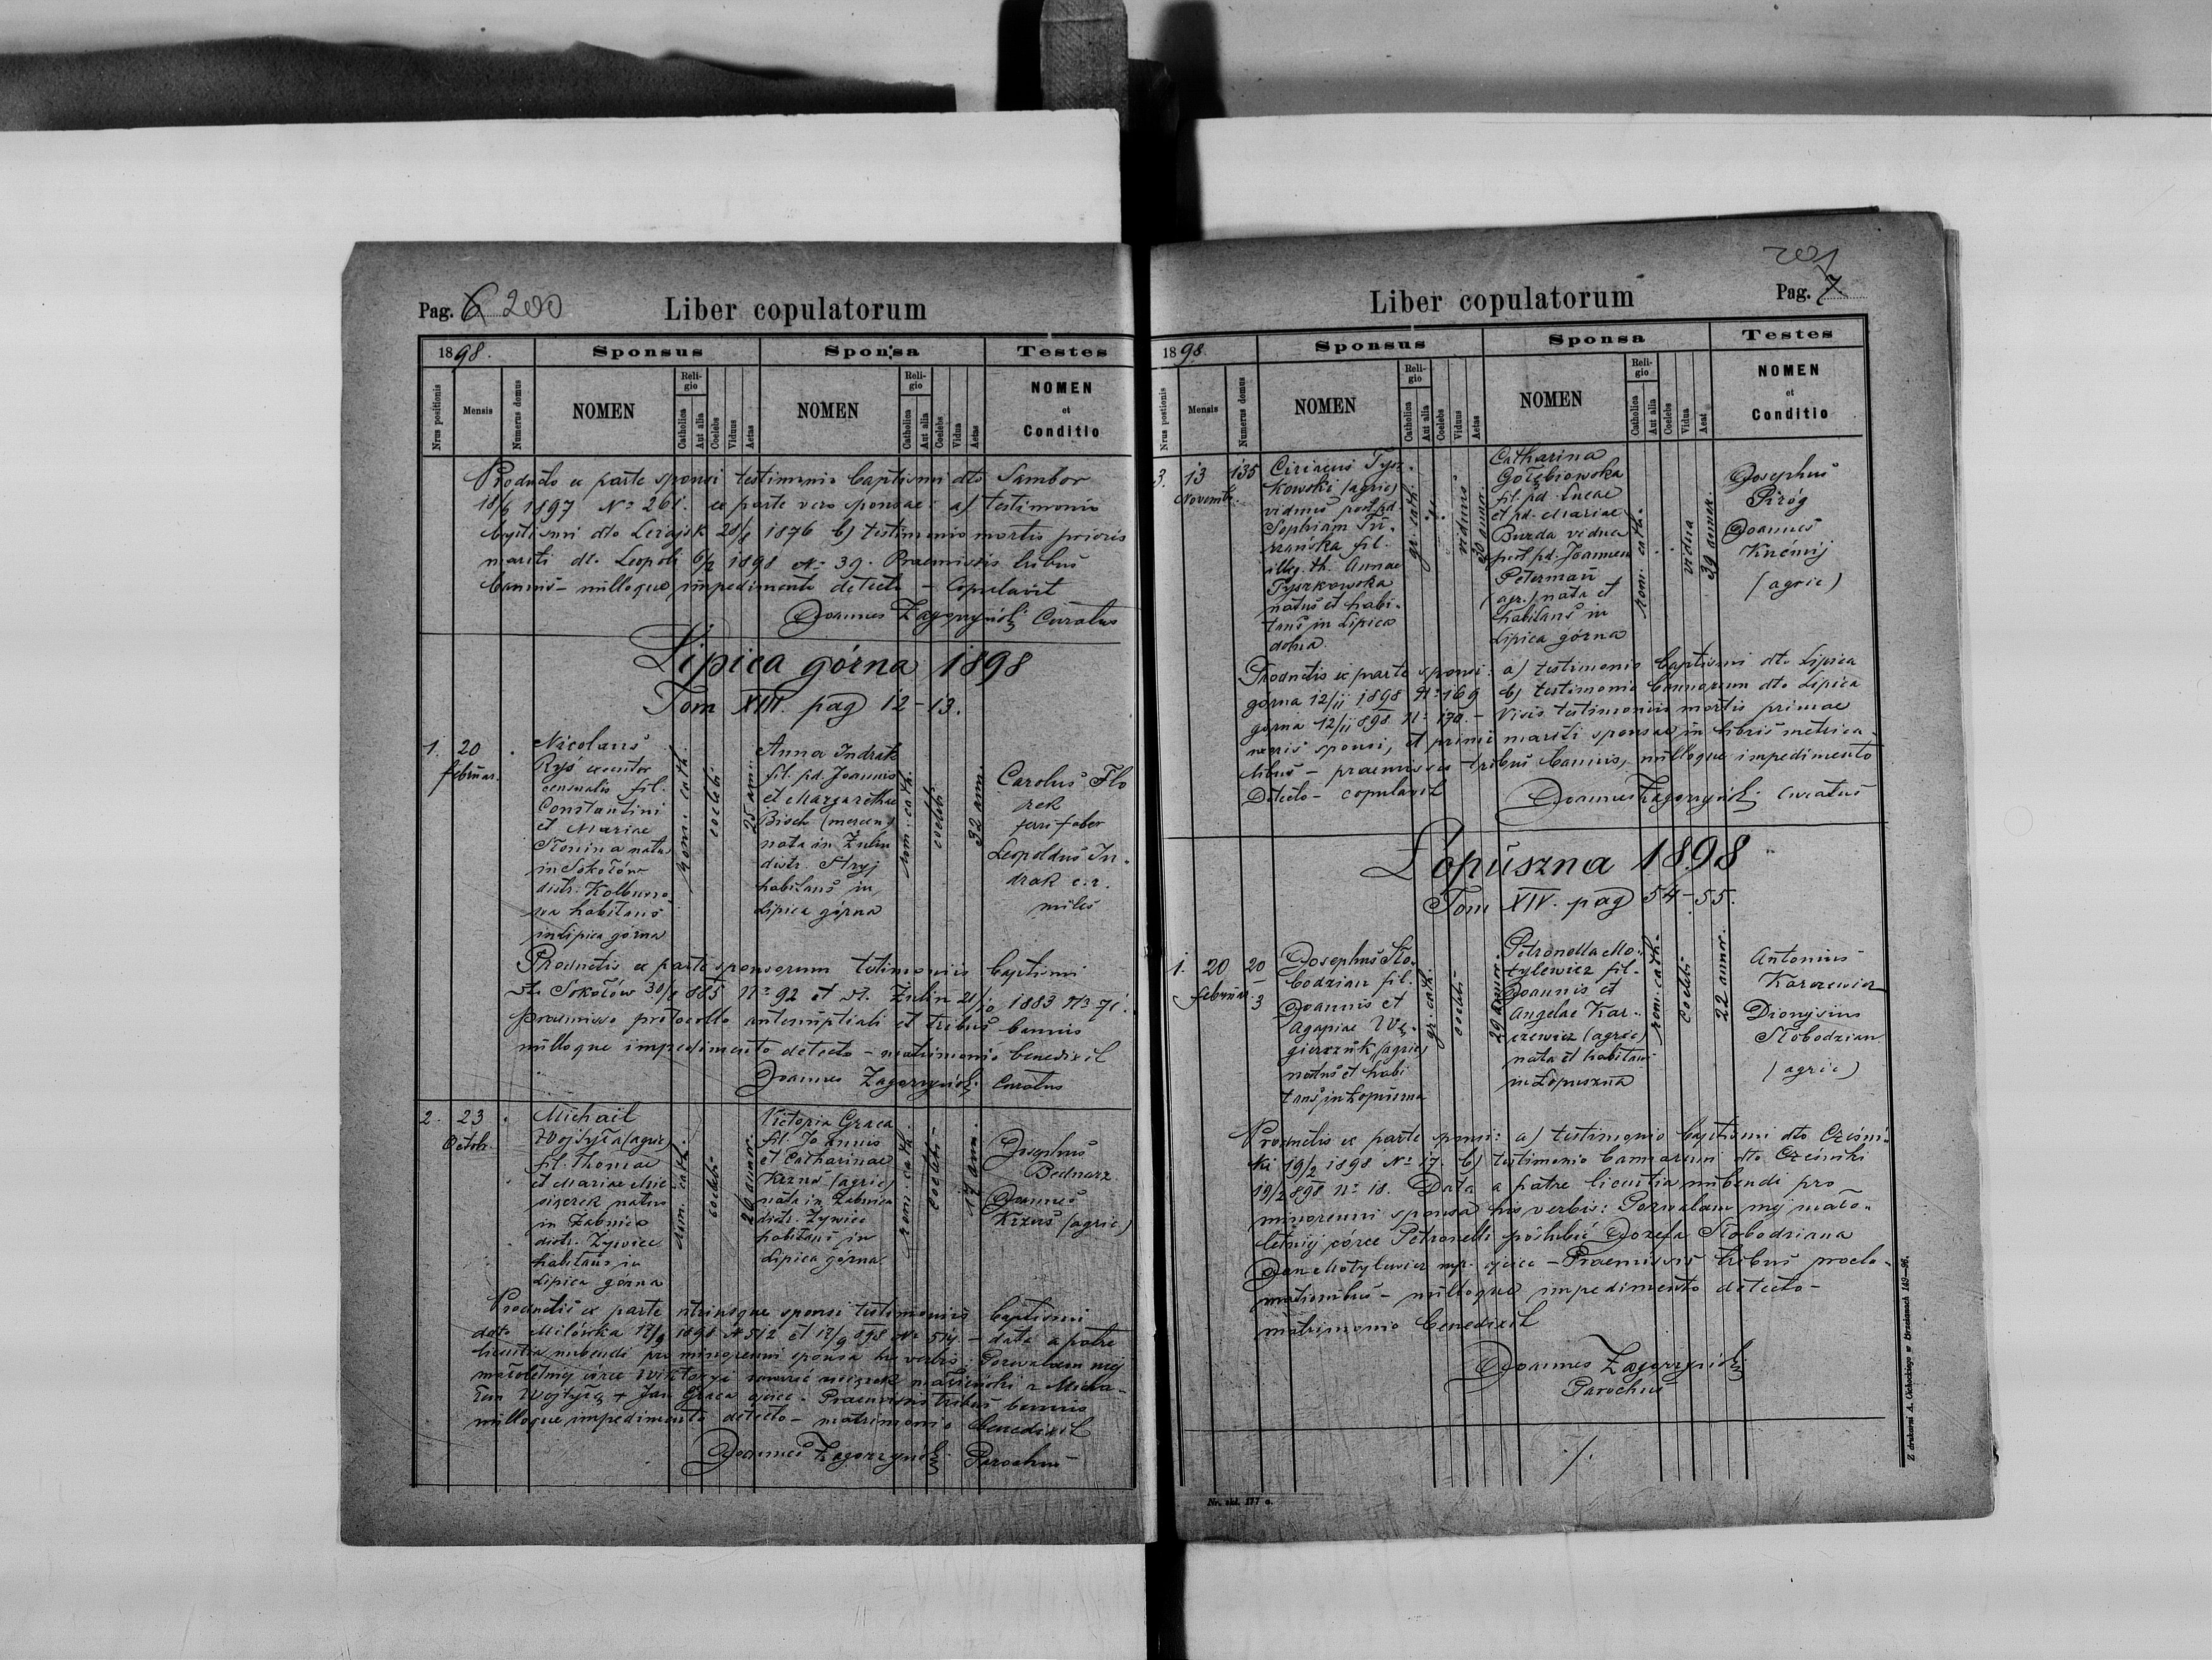 Pag. 6 200
Liber copulatorum
1898.
Sponsus
Sponsa
Testes
Nrus positionis
Mensis
Numerus domus
NOMEN
Religio
Catholica
Aut alia
Coelebs
Viduus
Aetas
NOMEN
Religio
Catholica
Aut alia
Coelebs
Vidua
Aetas
NOMEN
et
Conditio
Producto ex parte sponsi testimonio baptismi dto Sambor
18/6 1897 No 261. ex parte vero sponsae: a) testimonio
baptismi dto Leżajsk 28/8 1876 b) testimonio mortis prioris
mariti dt. Leopoli 6/2 1898 No 39. Praemissis tribus
bannis – nulloque impedimento detecto – Copulavit
Joannes Zagorzyński Curatus
Lipica górna 1898
Tom XIII. pag 12–13.
1. 20 februar.
Nicolaus
Ryś
censualis fil.
Constantini
et Mariae
Słonina natus
in Sokołów
distr. Kolbuszo-
wa habitans
in Lipica górna
rom. cath.
coelebs
25 ann.
Anna Indrak
fil. pd. Joannis
et Margarethae
Bisch (mercen.)
nata in Żulin
distr. Stryj
habitans in
Lipica górna
rom. cath.
coelebs
32 ann.
Carolus Flo
rek
ferri faber
Leopoldus In-
drak c. r.
miles
Productis ex parte sponsorum testimoniis baptismi
dt. Sokołów 30/8 885 No 92 et dt. Żulin 21/10 1883 No 71.
praemisso protocollo antenuptiali et tribus bannis
nulloque impedimento detecto – matrimonio benedixit
Joannes Zagorzyński Curatus
2. 23 Octob.
Michail
Wojtyła (agric)
fil. Thomae
et Mariae Mie
siączek natus
in Żabnica
distr. Żywiec
habitans in
Lipica górna
rom. cath.
coelebs
26 annor.
Victoria Graca
fil. Joannis
et Catharinae
Krzus (agric)
nata in Żabnica
distr. Żywiec
habitans in
Lipica górna
rom. cath.
coelebs
17 ann.
Josephus
Bednarz
Joannes
Krzus (agric)
Productis ex parte utriusque sponsi testimoniis baptismi
dato Milówka 17/9 1898 N 512 et 17/9 898 No 514. – data a patre
licentia nubendi pro minorenni sponsa his verbis: Pozwalam mej
małoletniej córce Wiktoryi zawrzeć związek małżeński z Micha-
łem Wojtyłą + Jan Graca ojciec. Praemissis tribus bannis
nulloque impedimento detecto – matrimonio benedixit
Joannes Zagorzyński Parochus
201
Pag. 7
Liber copulatorum
1898.
Sponsus
Sponsa
Testes
Nrus postionis
Mensis
Numerus domus
NOMEN
Religio
Catholica
Aut alia
Coelebs
Viduus
Aetas
NOMEN
Religio
Catholica
Aut alia
Coelebs
Vidua
Aeat
NOMEN
et
Conditio
3. 13 Novembr. 135
Ciriacus Tysz-
kowski (agric)
viduus post pd.
Sophiam Tu-
rzańska fil.
illeg. th. Annae
Tyszkowska
natus et habi-
tans in Lipica
dolna
gr. cath.
viduus
annor.
Catharina
Gołębiowska
fil. pd. Lucae
et pd. Mariae
Burda vidua
post pd. Joannem
Peterman
(agr.) nata et
habitans in
Lipica górna
rom. cath.
vidua
39 annor.
Josephus
Piróg
Joannes
Kuźmij
(agric)
Productis ex parte sponsi: a) testimonio baptismi dto Lipica
górna 12/11 1898 No 169 b) testimonio bannorum dto Lipica
górna 12/11 898 No 170. – Visis testimoniis mortis primae
uxoris sponsi, et primi mariti sponsae in libris metrica-
libus – praemissis tribus bannis, nulloque impedimento
detecto – copulavit
Joannes Zagorzyński curatus
Łopuszna 1898
Tom XIV. pag 54–55.
1. 20 februar. 20 3
Josephus Sło-
bodzian fil.
Joannis et
Agapiae Wę-
gierczuk (agric)
natus et habi
tans in Łopuszna
gr. cath.
coelebs
29 annor.
Petronella Mo-
tylewicz fil.
Joannis et
Angelae Kar-
czewicz (agric)
nata et habitans
in Łopuszna
rom. cath.
coelebs
22 annor.
Antonius
Karczewicz
Dionysius
Słobodzian
(agric)
Productis ex parte sponsi: a) testimonio baptismi dto Cześni-
ki 19/2 1898 No 17. b) testimonio bannorum dto Cześniki
19/2 898 No 18. Data a patre licentia nubendi pro
minorenni sponsa his verbis: Pozwalam mej mało-
letniej córce Petronelli poślubić Józefa Słobodziana
Jan Motylewicz mp. ojciec – Praemissis tribus procla-
mationibus – nulloque impedimento detecto –
matrimonio benedixit
Joannes Zagorzyński
Parochus
./.
Nr. skł. 177 a.
Z drukarni A. Cichockiego w Brzeżanach 149–96.